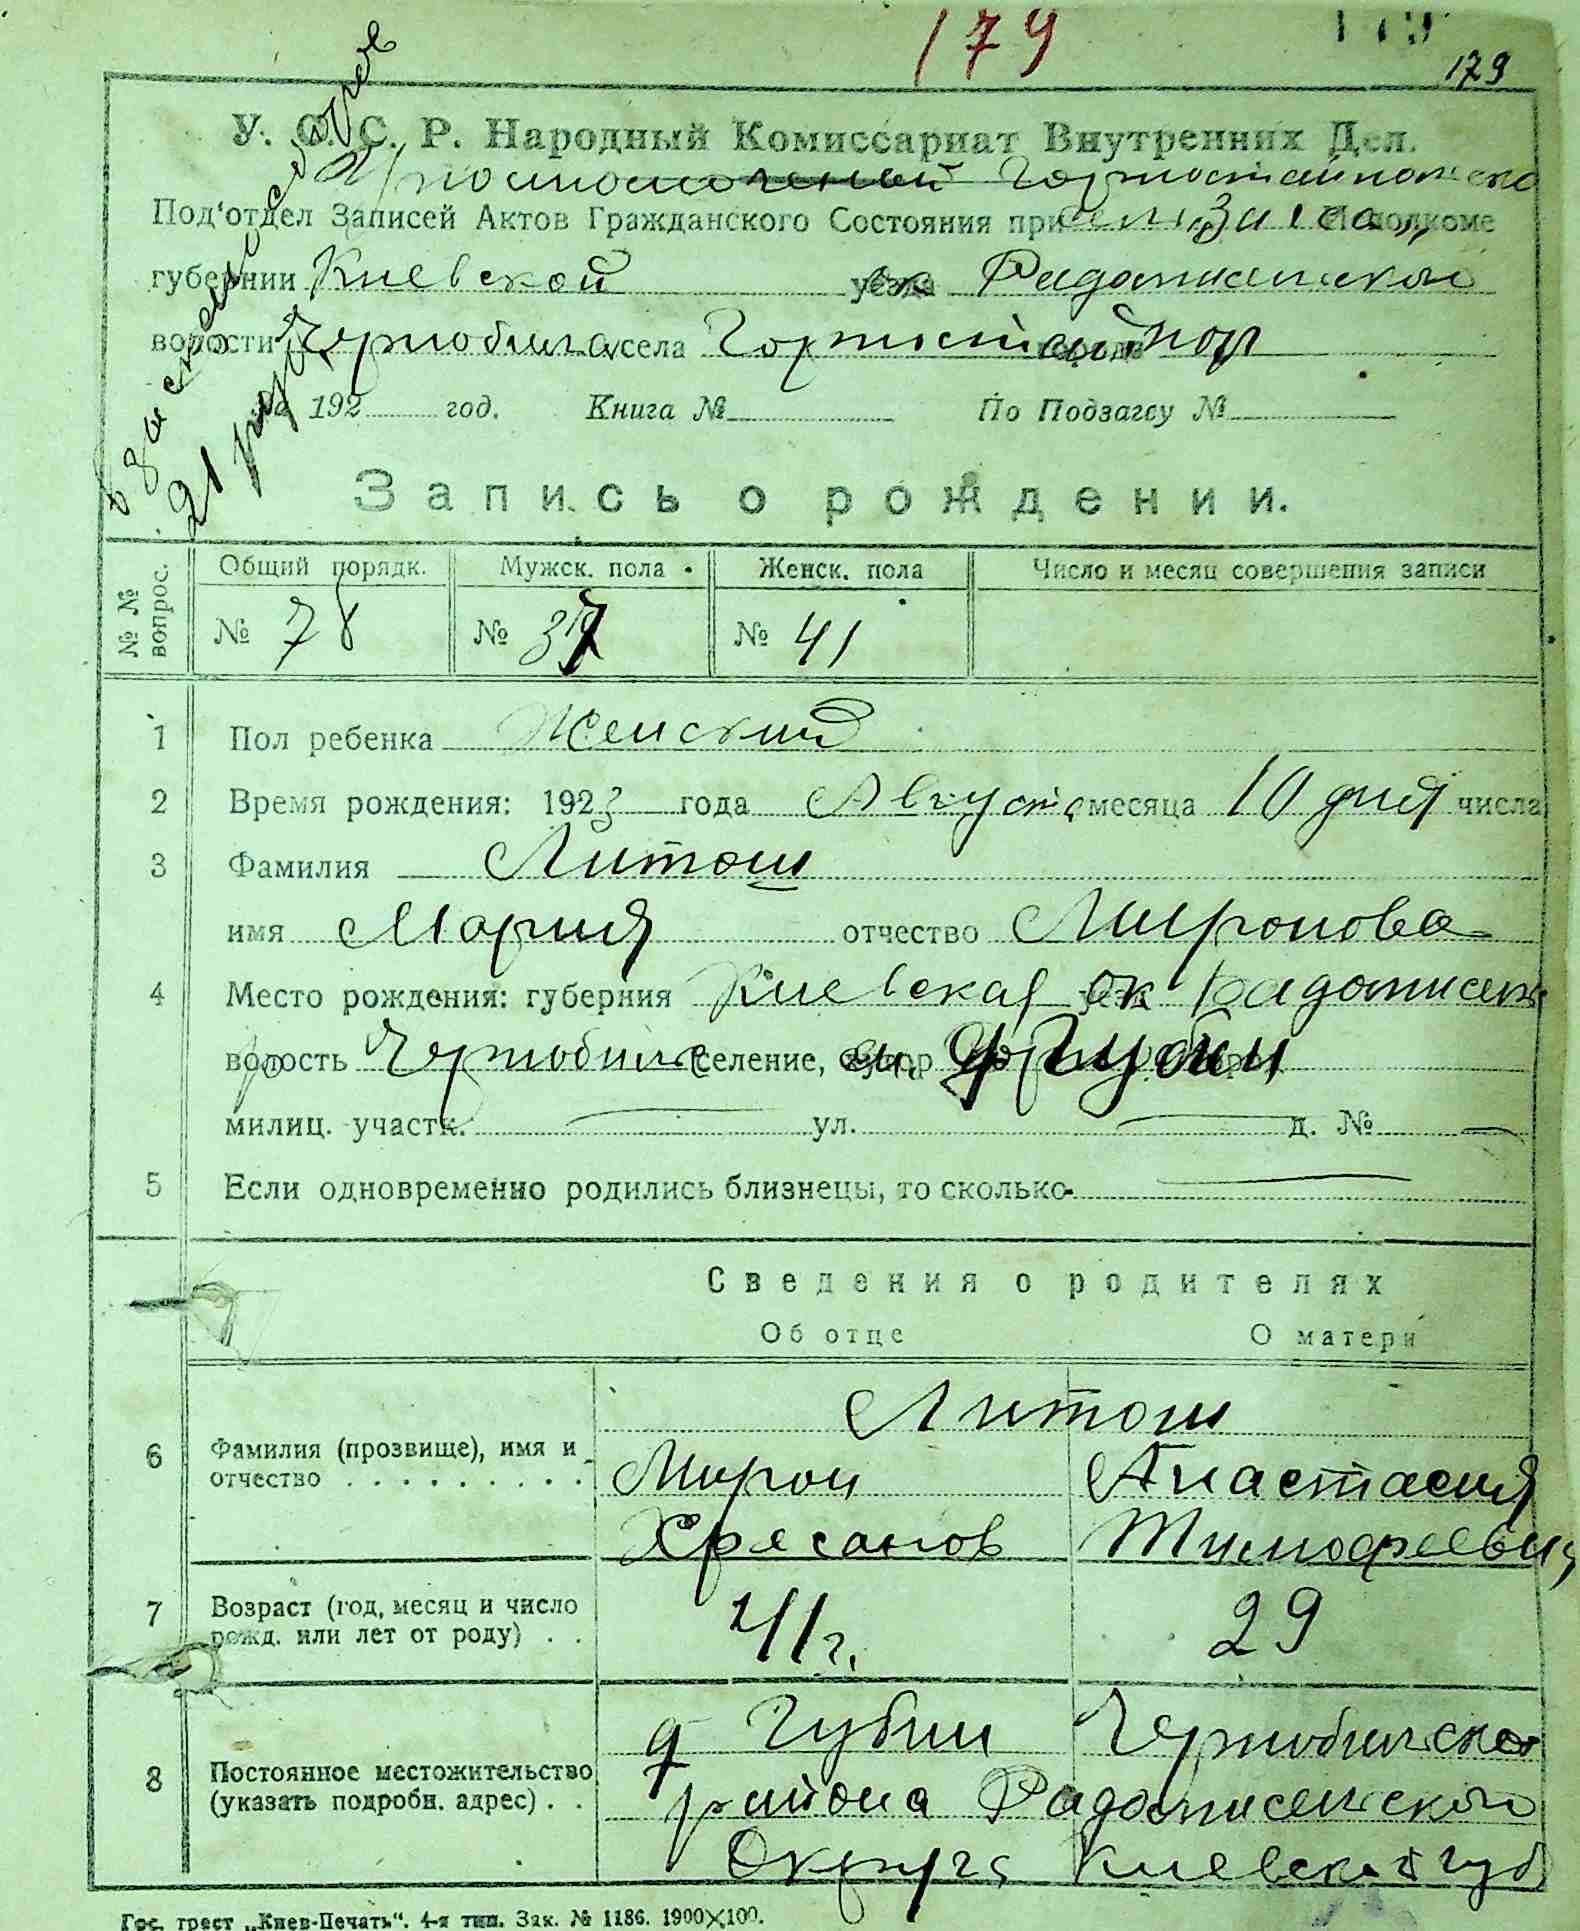 179
179
У. С. С. Р. Народный Комиссариат Внутренних Дел.
Под'отдел Записей Актов Гражданского Состояния при Исполкоме
губернии Киевской уезда Радомисльской
волости Чернобильск села Горностайполь
192 год. Книга № По Подзагсу №
21
Запись о рождении.
№ № вопрос. Общий порядк. Мужск. пола Женск. пола Число и месяц совершения записи
№ 78 № 37 № 41
1 Пол ребенка Женский
2 Время рождения: 1923 года Августа месяца 10 дня числа
3 Фамилия Литош
имя Мария отчество Миронова
4 Место рождения: губерния Киевская ок Радомисльск
волость Чернобильск селение, хутор д Губин
милиц. участк. ул. д. №
5 Если одновременно родились близнецы, то сколько
Сведения о родителях
Об отце О матери
Литош
6 Фамилия (прозвище), имя и отчество Мирон Анастасия
Хрисанов Тимофеевн
7 Возраст (год, месяц и число рожд. или лет от роду) 41 г. 29
д Губин Чернобильско
8 Постоянное местожительство (указать подробн. адрес) района Радомисльского
Округа Киевской губ
Гос. трест „Киев-Печать“. 4-я тип. Зак. № 1186. 1900×100.